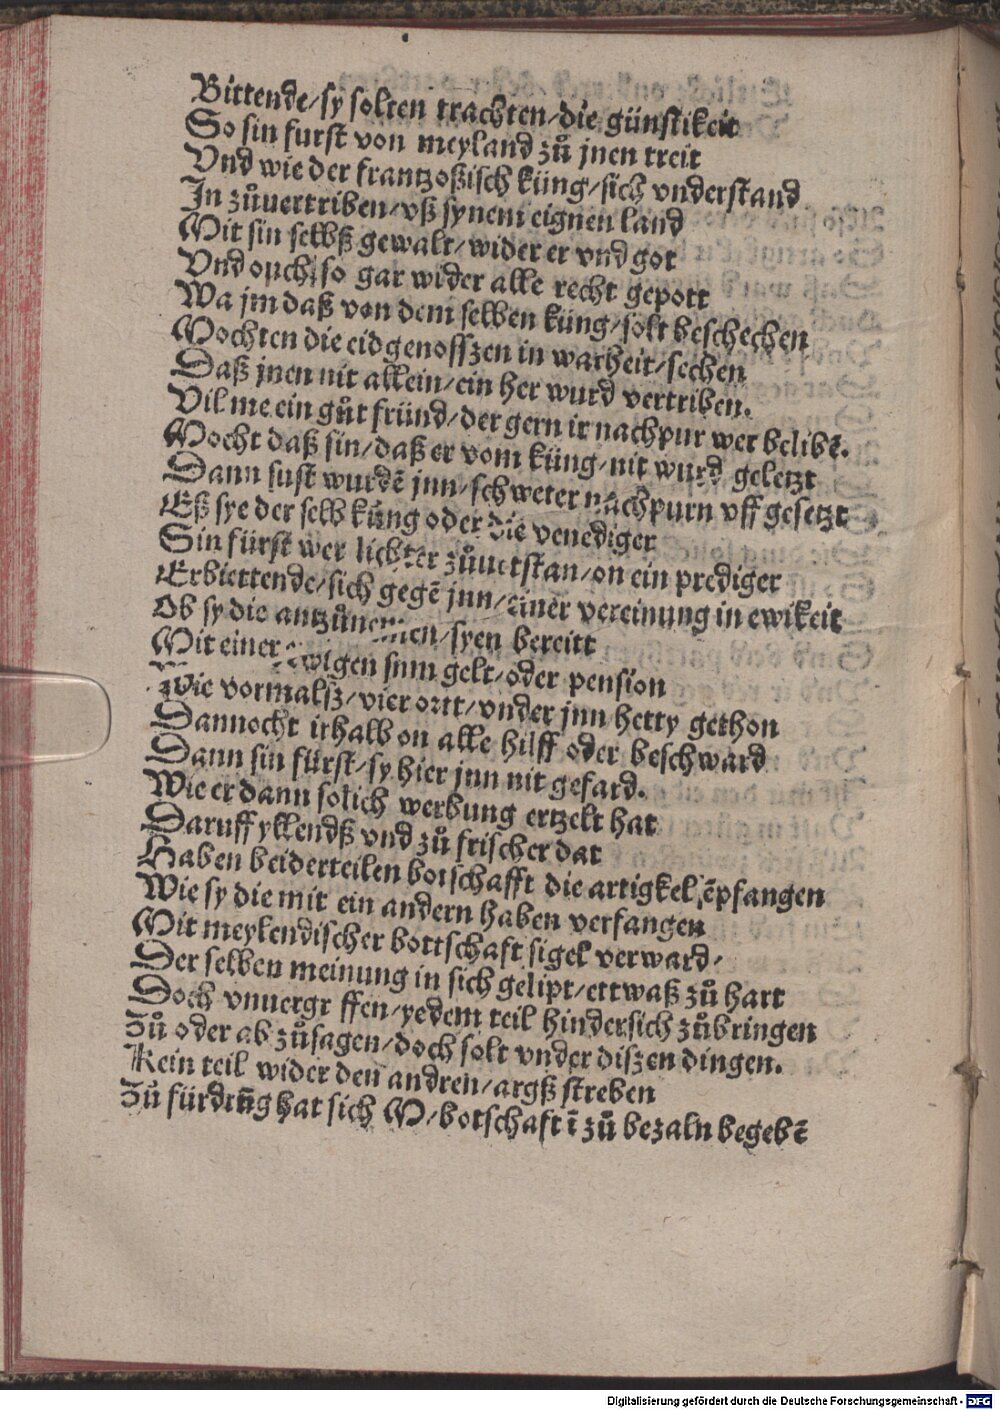 Bittende/sy solten trachten/die günstikeit
So sin furst von meyland zů jnen treit
Vnd wie der frantzoßisch küng/sich vnderstand
In zůuertriben/vß synem eignen land
Mit sin selbß gewalt/wider er vnd got
Vnd ouch/so gar wider alle recht gepott
Wa jm daß von dem selben küng/solt beschechen
Mochten die eidgenosszen in warheit/sechen
Daß jnen nit allein/ein her wurd vertriben.
Vil me ein gůt fründ/der gern ir nachpur wer belibē.
Mocht daß sin/daß er vom küng/nit wurd geletzt
Dann sust wurdē jnn/schweter nachpurn vff gesetzt
Eß sye der selb küng oder die venediger
Sin fürst wer liebter zůuerstan/on ein prediger
Erbiettende/sich gegē jnn/einer vereinung in ewikeit
Ob sy die antzůnemen/syen bereitt
Mit einer ewigen sum gelt/oder pension
Wie vormalß/vier ortt/vnder jnn hetty gethon
Dannocht irhalb on alle hilff oder beschward
Dann sin fürst/sy hier jnn nit gefard.
Wie er dann solich werbung ertzelt hat
Daruff yllendß vnd zů frischer dat
Haben beiderteilen botschafft die artigkel ēpfangen
Wie sy die mit ein andern haben verfangen
Mit meylendischer bottschaft sigel verward/
Der selben meinung in sich gelipt/ettwaß zů hart
Doch vnuergr ffen/yedem teil hindersich zůbringen
Zů oder ab zůsagen/doch solt vnder diszen dingen.
Kein teil wider den andren/argß streben
Zů fürdrūg hat sich M/botschaft ī zů bezaln begebē
Digitalisierung gefördert durch die Deutsche Forschungsgemeinschaft - DFG